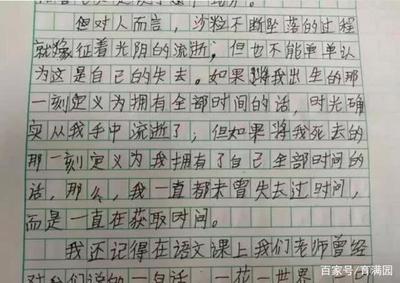 但对人而言，沙粒不断坠落的过程
就像征着光阴的流逝；但也不能单单认
为这是自己的失去。如果将我出生的那
一刻定义为拥有全部时间的话，时光确
实从我手中流逝了；但如果将我死去的
那一刻定义为我拥有了自己全部时间的
话，那么，我一直都未曾失去过时间，
而是一直在获取时间。
我还记得在语文课上我们老师曾经
对我们说的一句话，一花一世界，
百家号/育满园